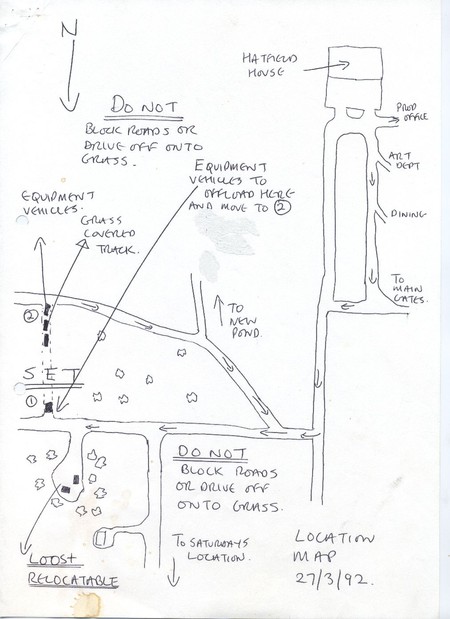 N
HATFIELD
HOUSE
PROD
OFFICE
DO NOT
BLOCK ROADS OR
DRIVE OFF ONTO
GRASS.
ART
DEPT
EQUIPMENT
VEHICLES TO
OFFLOAD HERE
AND MOVE TO 2
EQUIPMENT
VEHICLES.
GRASS
COVERED
TRACK.
DINING
TO
MAIN
GATES.
TO
NEW
POND.
2
SET
1
DO NOT
BLOCK ROADS
OR DRIVE OFF
ONTO GRASS.
TO SATURDAYS
LOCATION.
LOCATION
MAP
27/3/92.
RELOCATABLE